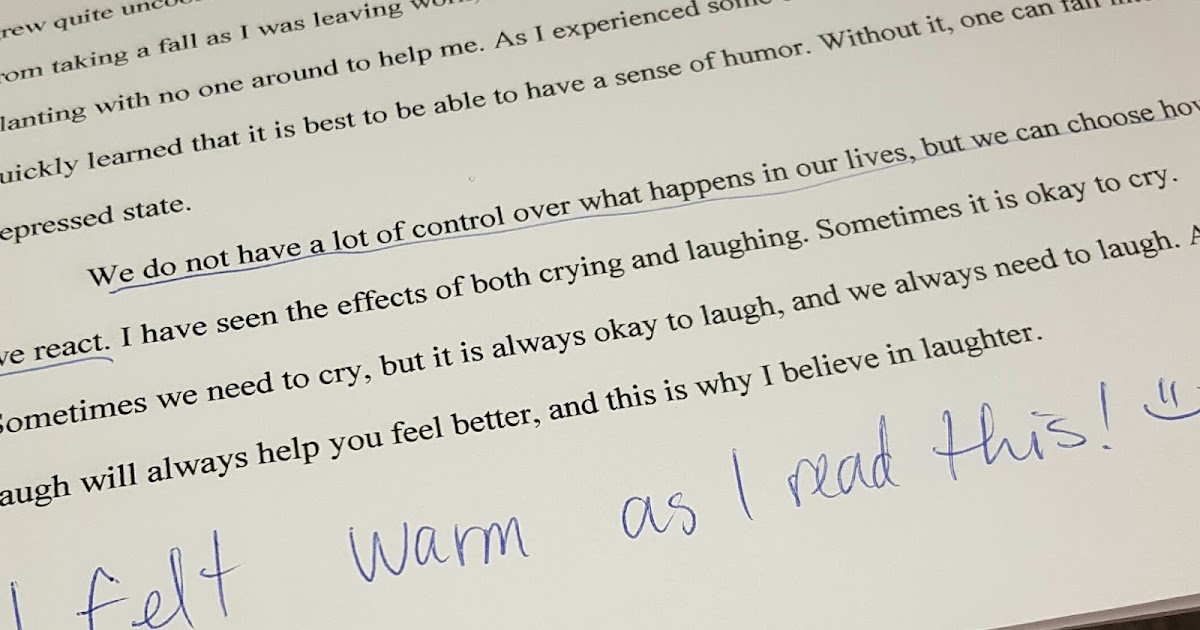 rew quite
rom taking a fall as I was leaving
lanting with no one around to help me. As I experienced
uickly learned that it is best to be able to have a sense of humor. Without it, one can fall
epressed state.
We do not have a lot of control over what happens in our lives, but we can choose how
we react. I have seen the effects of both crying and laughing. Sometimes it is okay to cry.
Sometimes we need to cry, but it is always okay to laugh, and we always need to laugh. A
augh will always help you feel better, and this is why I believe in laughter.
I felt warm as I read this! :)